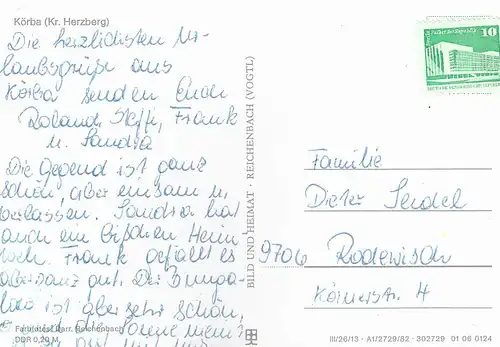 Körba (Kr. Herzberg)
Die herzlichsten Ur-
laubsgrüße aus
Körba senden Euch
Roland, Steffi, Frank
u. Sandra
Die Gegend ist ganz
schön, aber einsam u.
verlassen. Sandra hat
auch ein bißchen Heim
weh. Frank gefällt es
aber ganz gut. Der Bunga-
low ist aber sehr schön,
die Sonne
Reichenbach
DDR 0,20 M
BILD UND HEIMAT · REICHENBACH (VOGTL)
10
Familie
Dieter Seidel
9706 Rodewisch
Körnerstr. 4
III/26/13 · A1/2729/82 · 302729 01 06 0124